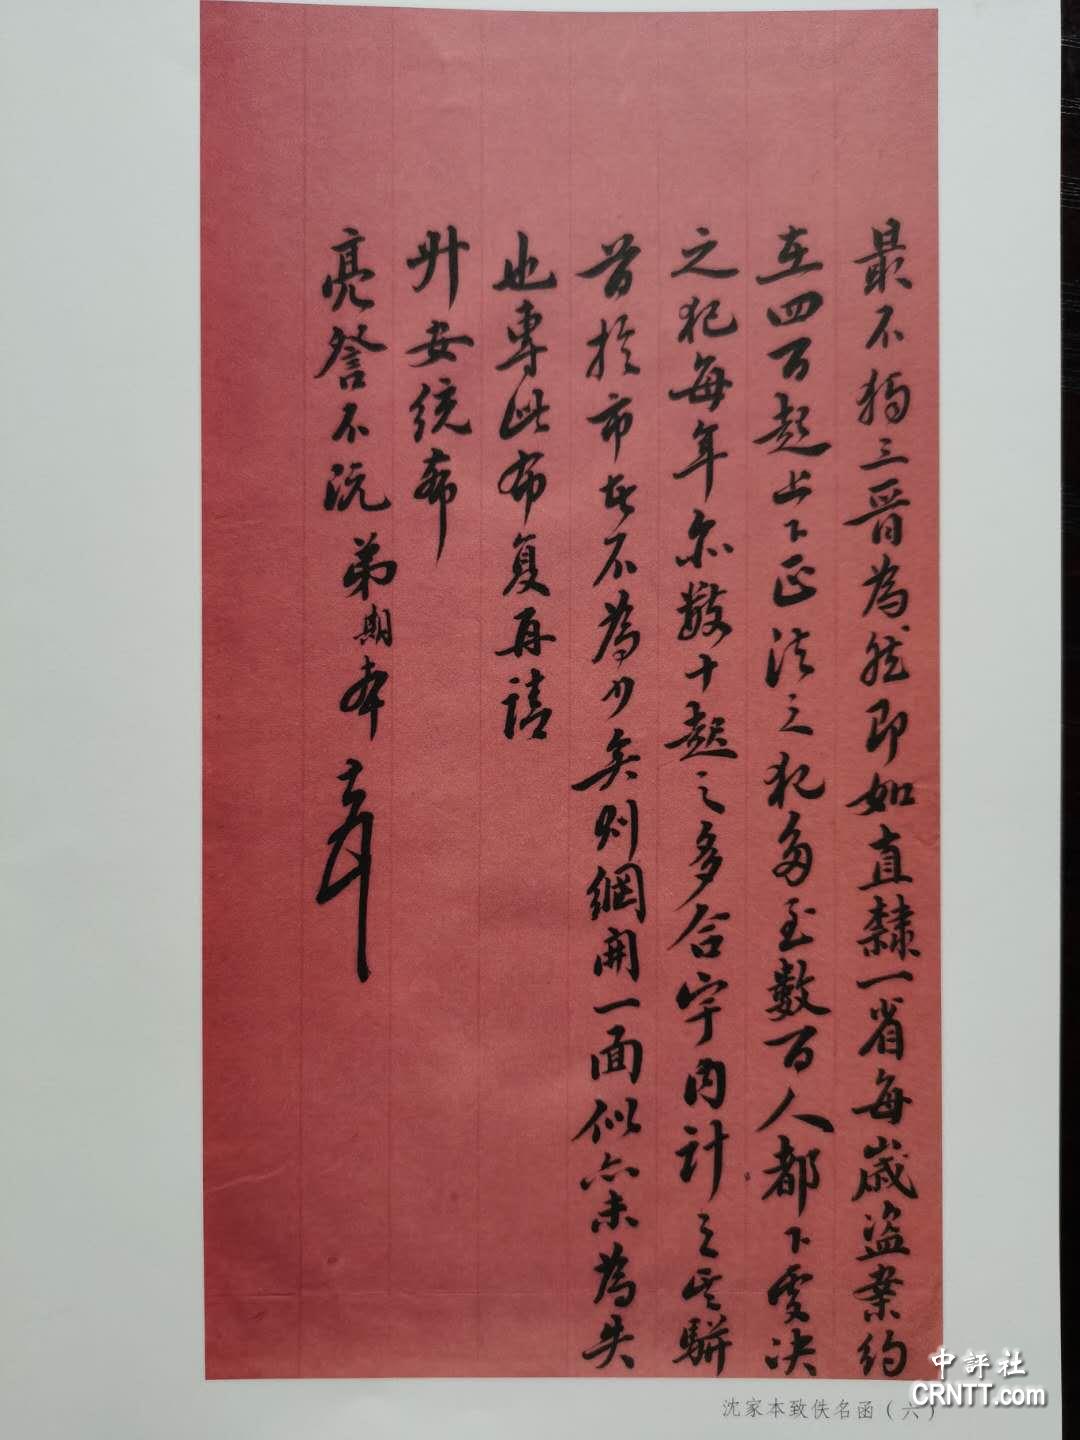 最不獨三晉為然即如直隸一省每歲盜案約
在四百起上下正法之犯多至數百人都下處決
之犯每年亦數十起之多合宇內計之其駢
首於市者不為少矣則網開一面似亦未為失
也專此布复再請
升安統希
亮詧不沅弟期本
沈家本致佚名函（六）
中評社
CRNTT.com